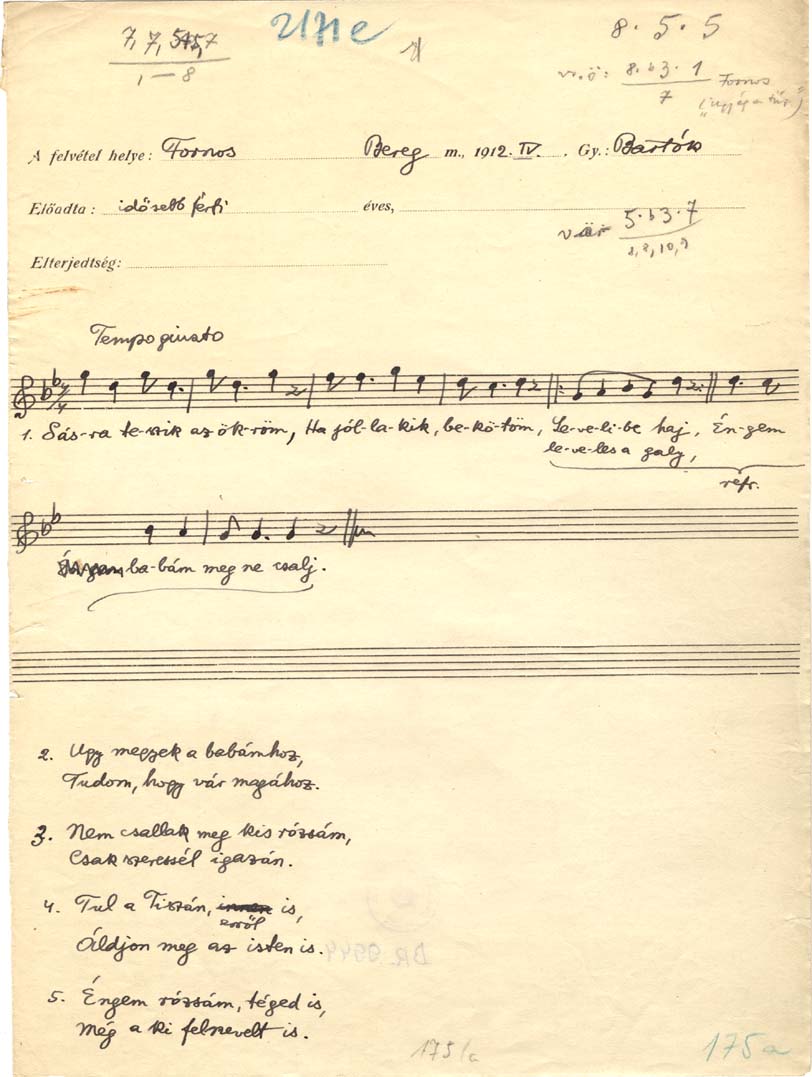 7, 7, 5
1 — 8
8 · 5 · 5
8 · b3 · 1
7
Fornos
A felvétel helye: Fornos Bereg m., 1912. IV. Gy.: Bartók
Előadta: idősebb férfi éves,
5 · b3 · 7
8, 8, 10, 9
Elterjedtség:
Tempo giusto
1. Sás-ra te-szik az ök-röm, Ha jól-la-kik, be-kö-töm, Le-ve-li-be haj, Én-gem
le-ve-les a galy,
refr.
ba-bám meg ne csalj.
2. Ugy megyek a babámhoz,
Tudom, hogy vár magához.
3. Nem csallak meg kis rózsám,
Csak szeressél igazán.
4. Tul a Tiszán, innen is,
erről
Áldjon meg az isten is.
5. Éngem rózsám, téged is,
Még a ki felnevelt is.
BR 0944
175/a
175a